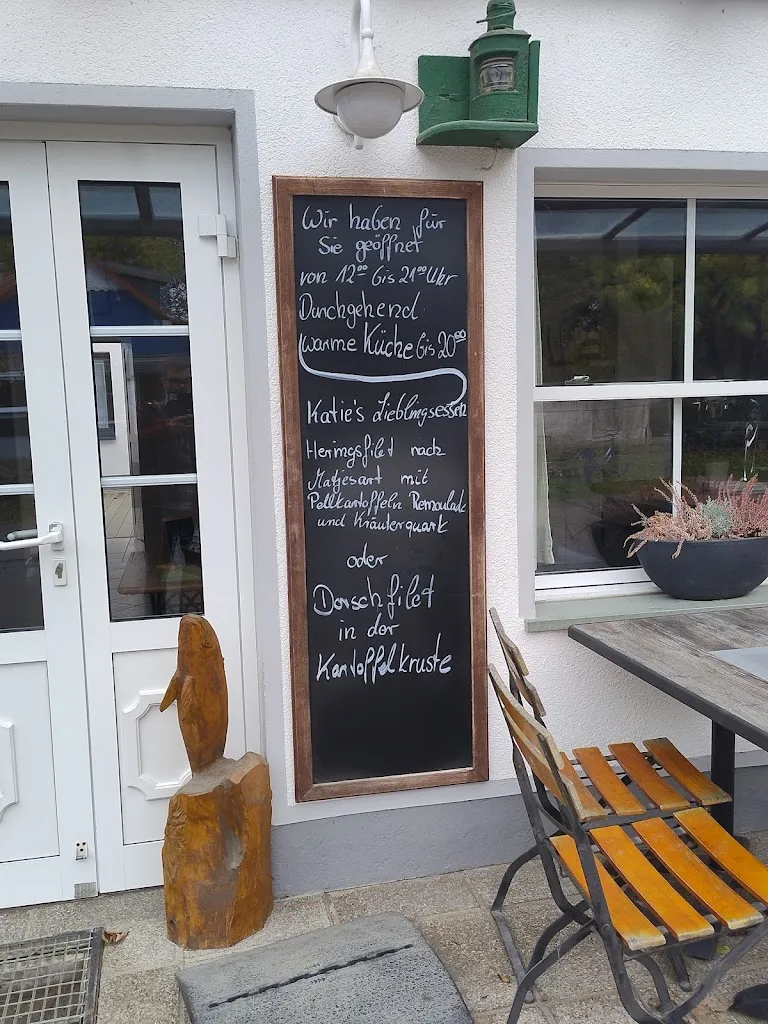 Wir haben für
Sie geöffnet
von 12⁰⁰ bis 21⁰⁰ Uhr
Durchgehend
warme Küche bis 20⁰⁰
Katie's Lieblingsessen
Heringsfilet nach
Matjesart mit
Pellkartoffeln Remoulade
und Kräuterquark
oder
Dorschfilet
in der
Kartoffelkruste